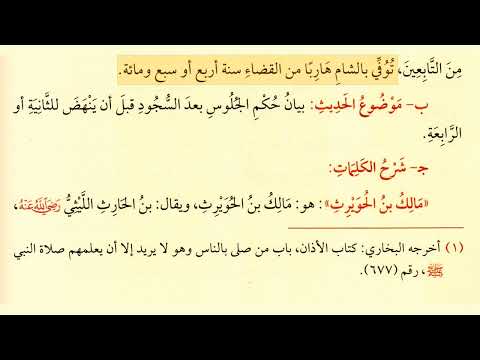 مِنَ التَّابِعِينَ، تُوُفِّي بالشامِ هَارِبًا من القضاءِ سنة أربع أو سبع ومائة.
ب- مَوْضُوعُ الحَدِيثِ: بيانُ حُكْمِ الجُلُوسِ بعدَ السُّجُودِ قبلَ أن يَنْهَضَ للثَّانِيَةِ أو
الرَّابِعَةِ.
جـ- شَرْحُ الكَلِمَاتِ:
«مَالِكُ بنُ الحُوَيْرِثِ»: هو: مَالِكُ بنُ الحُوَيْرِثِ، ويقال: بنُ الحَارِثِ اللَّيْثِيُّ رَضِيَ اللَّهُ عَنْهُ،
(١) أخرجه البخاري: كتاب الأذان، باب من صلى بالناس وهو لا يريد إلا أن يعلمهم صلاة النبي
ﷺ، رقم (٦٧٧).